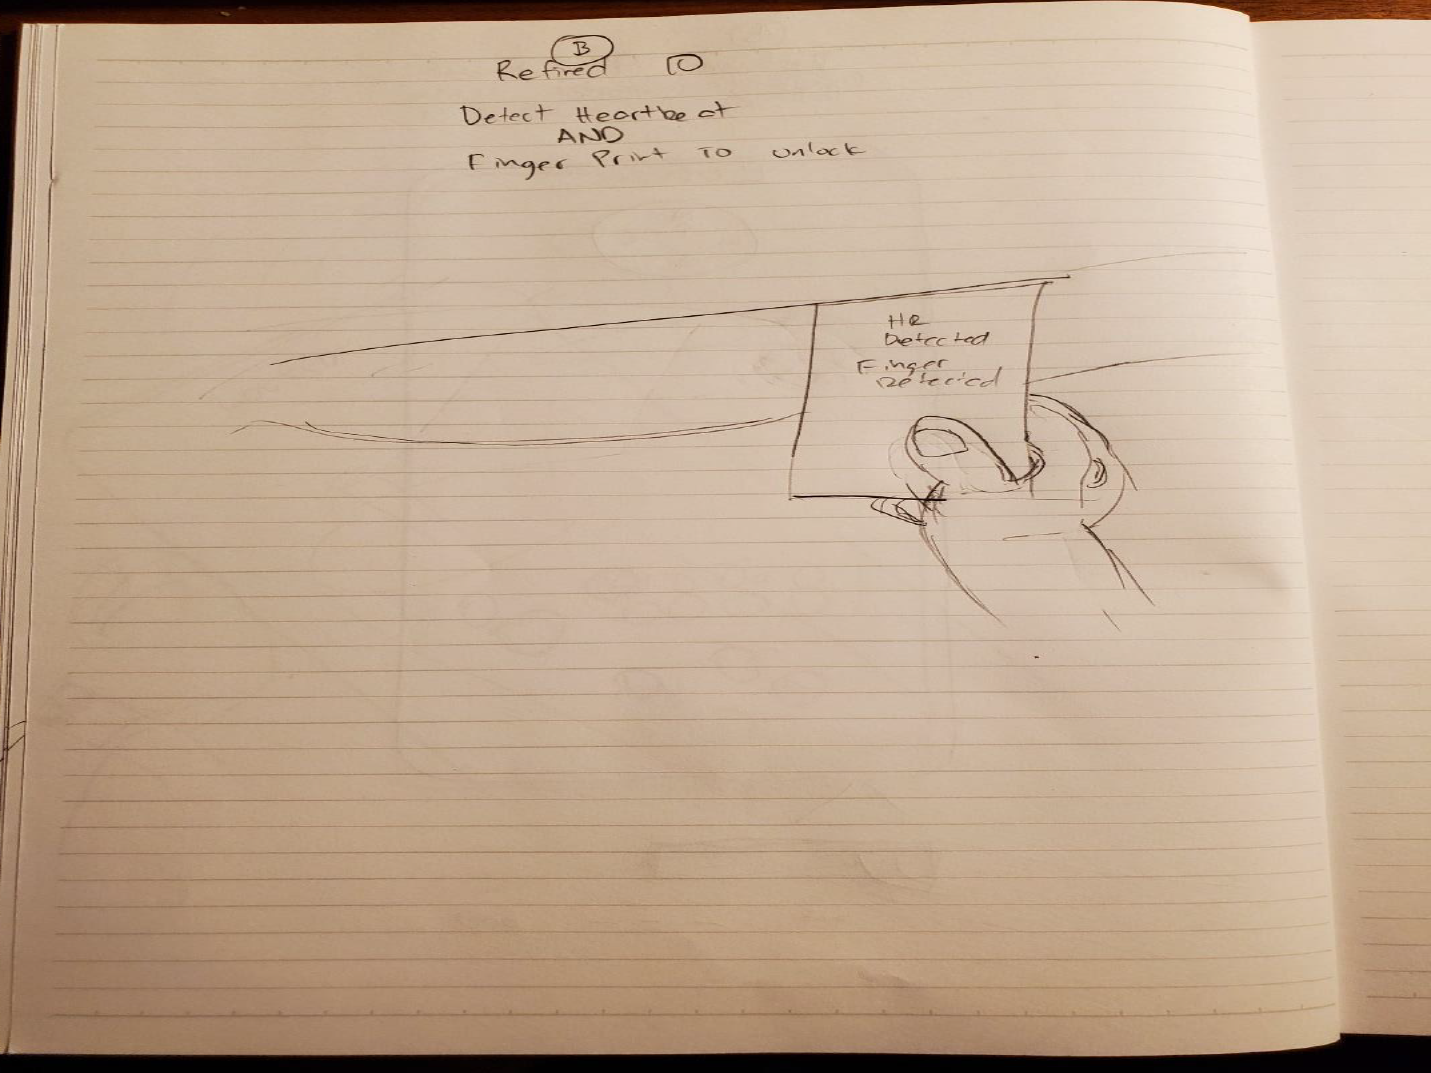 B
Refined 10
Detect Heartbeat
AND
Finger Print To unlock
HR
Detected
Finger
Detected